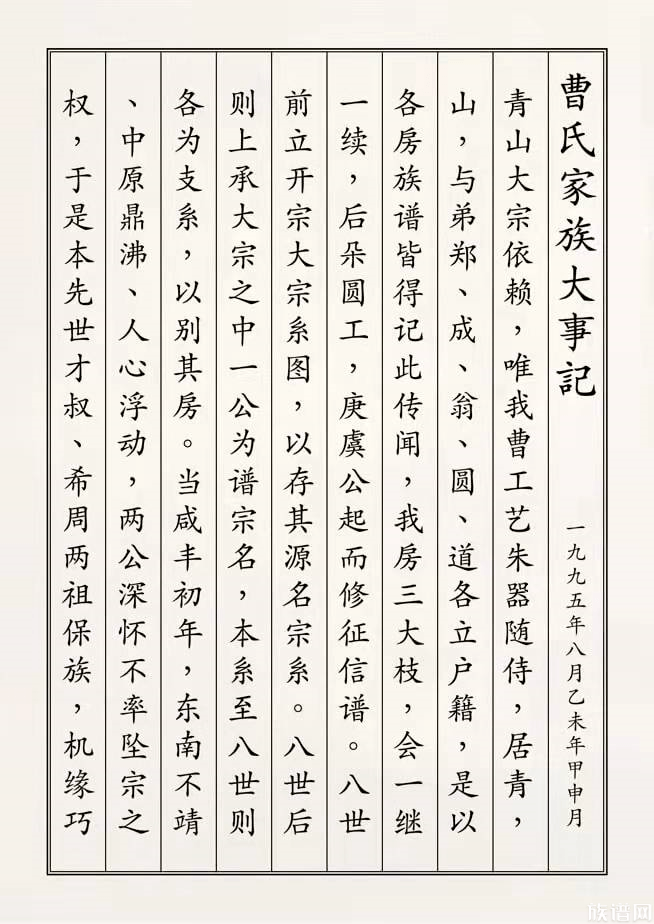 曹氏家族大事記
一九九五年八月乙未年甲申月
青山大宗依赖，唯我曹工艺朱器随侍，居青，
山，与弟郑、成、翁、圆、道各立户籍，是以
各房族谱皆得记此传闻，我房三大枝，会一继
一续，后朵圆工，庚虞公起而修征信谱。八世
前立开宗大宗系图，以存其源名宗系。八世后
则上承大宗之中一公为谱宗名，本系至八世则
各为支系，以别其房。当咸丰初年，东南不靖
、中原鼎沸、人心浮动，两公深怀不率坠宗之
权，于是本先世才叔、希周两祖保族，机缘巧
族谱网